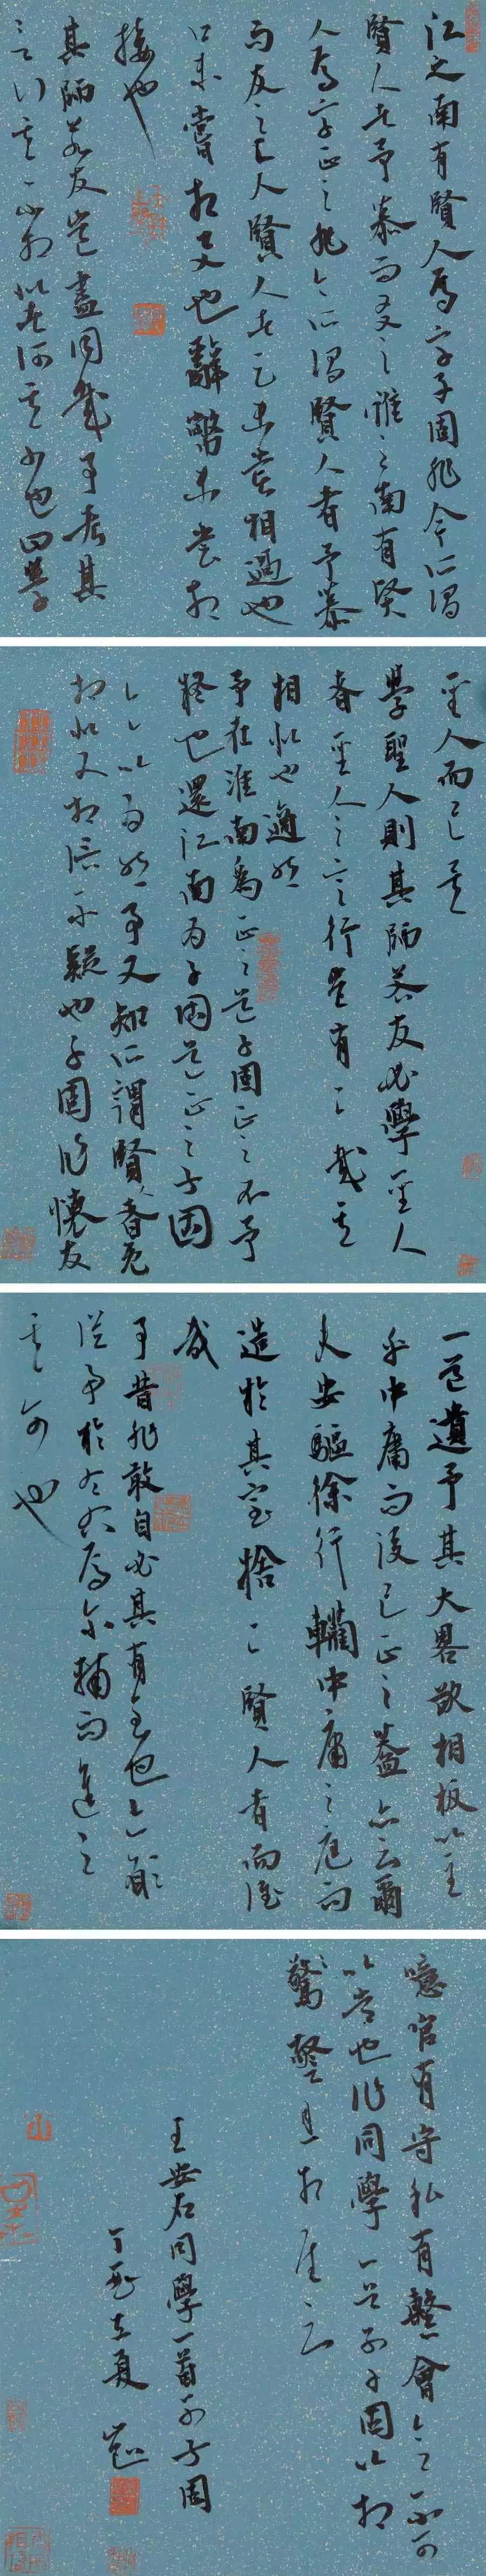 江之南有賢人焉字子固非今所謂
賢人者予慕而友之淮之南有賢
人焉字正之非今所謂賢人者予慕
而友之二人賢人者足未嘗相過也
口未嘗相交也辭幣未嘗相
接也
其師若友豈盡同哉予考其
言行其不相似者何其少也曰學
聖人而已矣
學聖人則其師若友必學聖人
者聖人之言行豈有二哉其
相似也適然
予在淮南為正之道子固正之不予
疑也還江南為子固道正之子固
亦以為然予又知所謂賢人者既
相似又相信不疑也子固作懷友
一首遺予其大畧欲相扳以至
乎中庸而後已正之蓋亦云爾
夫安驅徐行轥中庸之庭而
造於其室捨二賢人者而誰
哉
予昔非敢自必其有至也亦願
從事於左右焉爾輔而進之
其可也
噫官有守私有繫會合不可
以常也作同學一首別子固以相
警且相慰云
王安石同學一首別子固
丁酉立夏